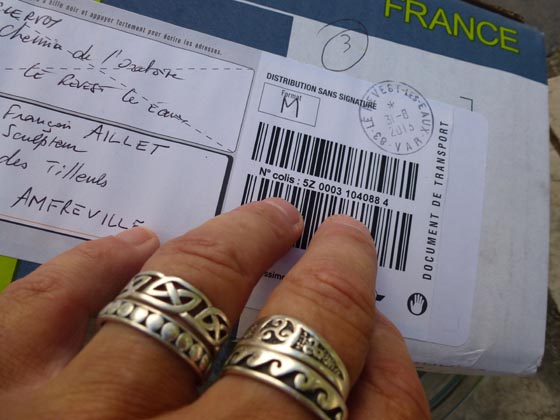 FRANCE
à bille noir et appuyer fortement pour écrire les adresses.
Chemin de l'oratoire
Le Revest les Eaux
François AILLET
Sculpteur
des Tilleuls
AMFREVILLE
3
DISTRIBUTION SANS SIGNATURE
Format
M
83-LE REVEST-LES-EAUX
31-8
2013
VAR
N° colis : 5Z 0003 104088 4
DOCUMENT DE TRANSPORT